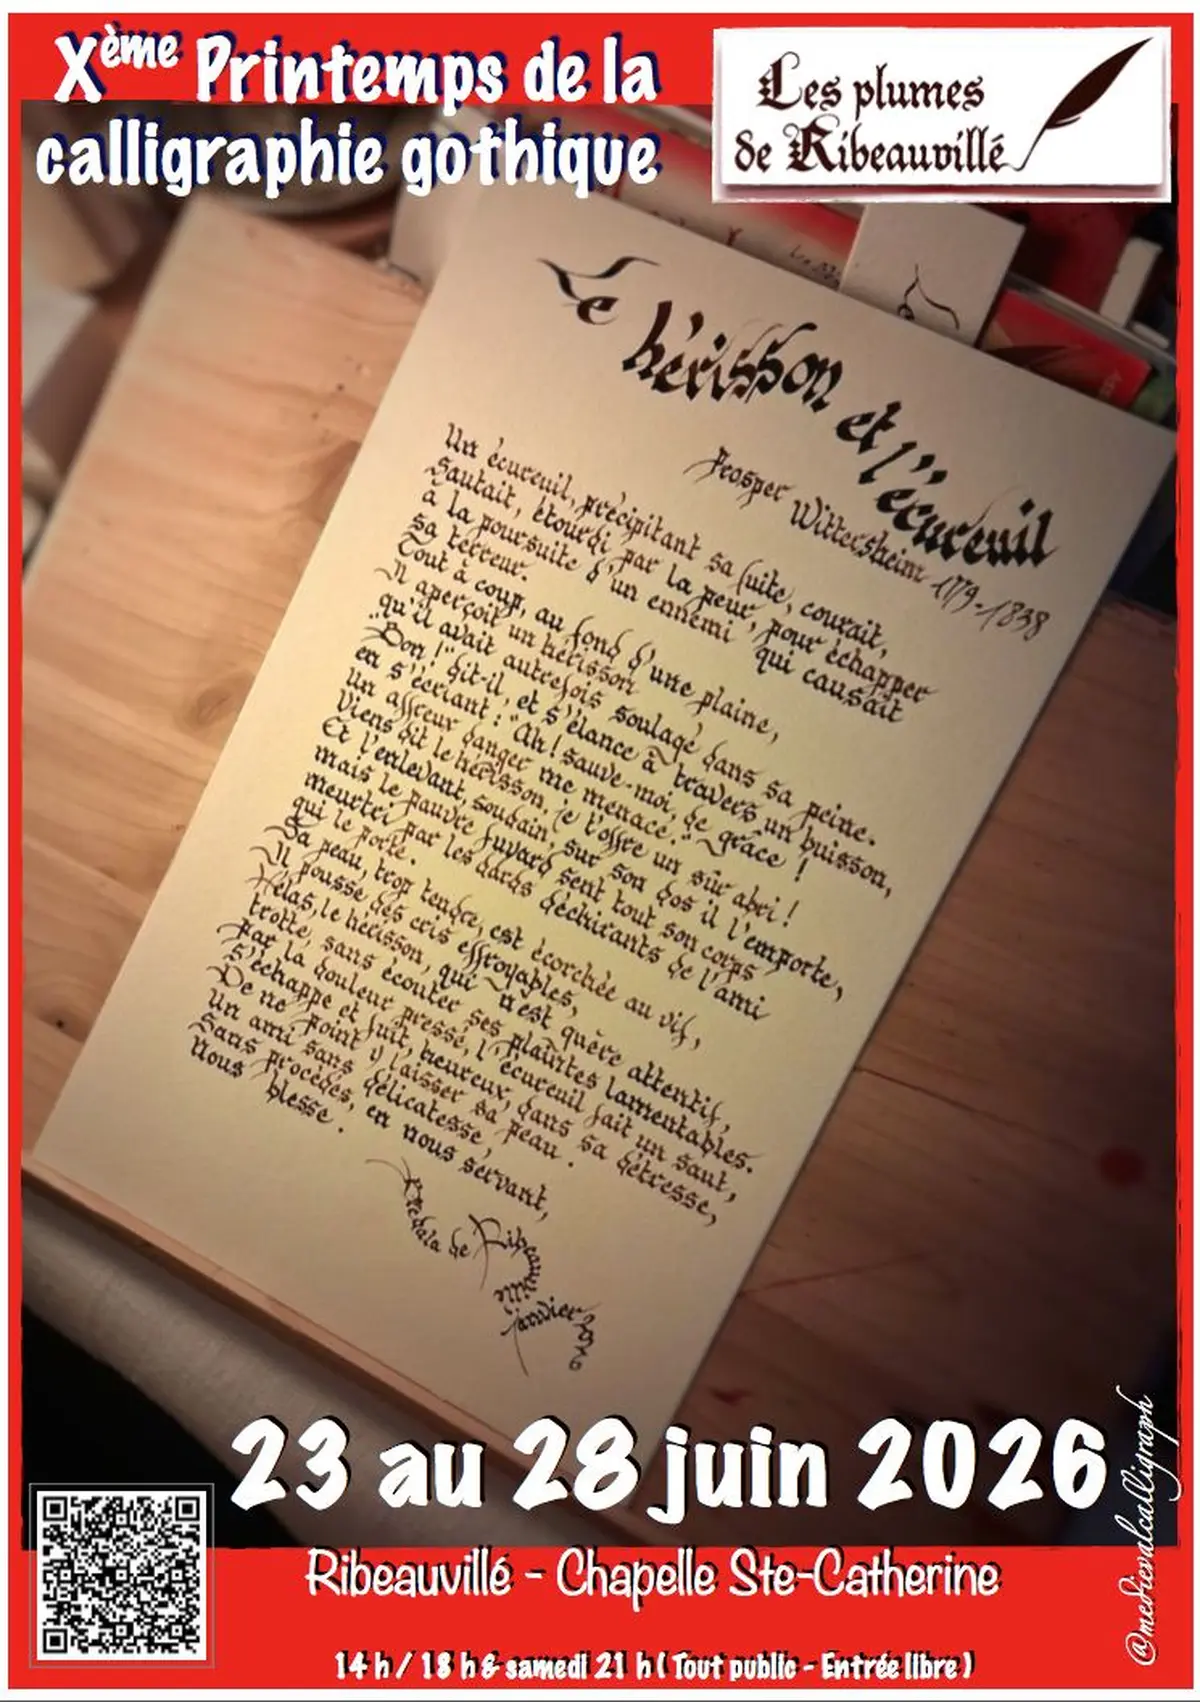 Xème Printemps de la
calligraphie gothique
Les plumes
de Ribeauvillé
Le hérisson et l'écureuil
Prosper Wittersheim 1779-1838
Un écureuil, précipitant sa fuite, courait,
Sautait, étourdi par la peur, pour échapper
à la poursuite d'un ennemi qui causait
sa terreur.
Tout à coup, au fond d'une plaine,
Il aperçoit un hérisson
qu'il avait autrefois soulagé dans sa peine.
"Bon!" dit-il, et s'élance à travers un buisson,
en s'écriant : "Ah! sauve-moi, de grâce !
un affreux danger me menace."
Viens dit le hérisson, je t'offre un sûr abri !
Et l'enlevant, soudain, sur son dos il l'emporte,
mais le pauvre fuyard sent tout son corps
meurtri par les dards déchirants de l'ami
qui le porte.
Sa peau, trop tendre, est écorchée au vif,
Il pousse des cris effroyables,
Hélas, le hérisson, qui n'est guère attentif,
trotte, sans écouter ses plaintes lamentables.
par la douleur pressé, l'écureuil fait un saut,
s'échappe et fuit, heureux, dans sa détresse,
De ne point y laisser sa peau.
Un ami sans délicatesse,
Sans procédés, en nous servant,
Nous blesse.
de Ribeauvillé
janvier 2026
23 au 28 juin 2026
Ribeauvillé - Chapelle Ste-Catherine
14 h / 18 h & samedi 21 h ( Tout public - Entrée libre )
@medievalcalligraph